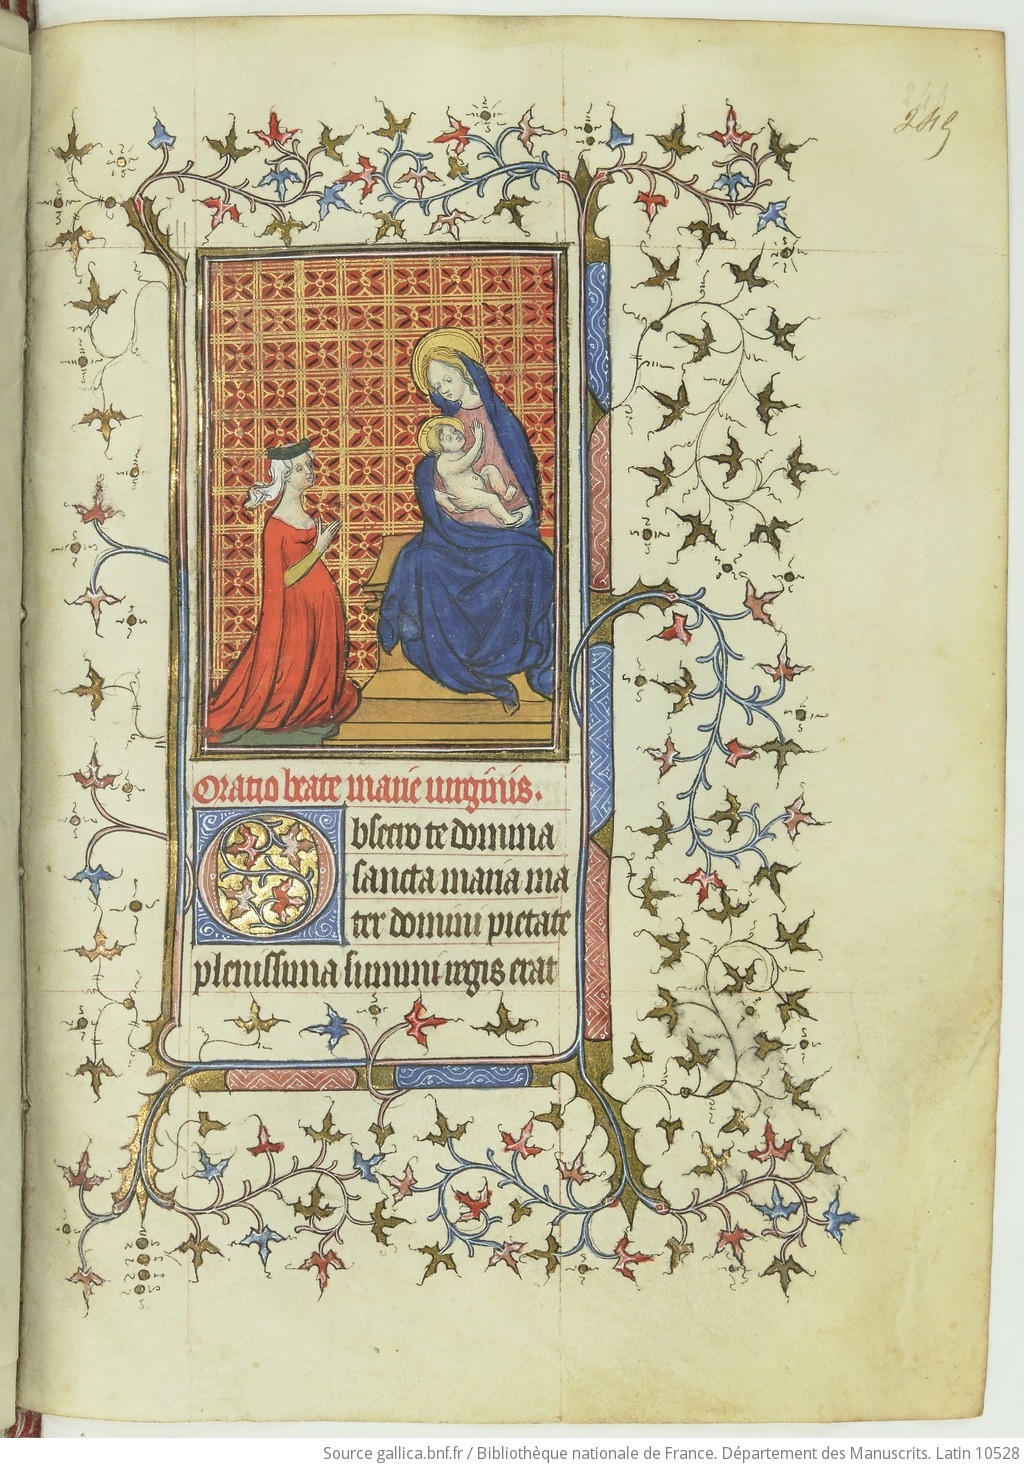 249
Oratio beate marie virginis.
Obsecro te domina
sancta maria ma
ter domini pietate
plenissima summi regis erat
Source gallica.bnf.fr / Bibliothèque nationale de France. Département des Manuscrits. Latin 10528